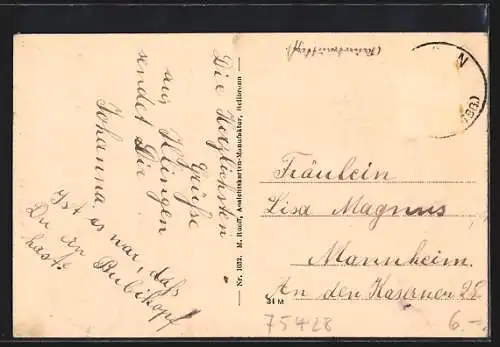 Die Herzlichsten
Grüße
aus Klingen
sendet Die
Johanna.
Ist es war, daß
Du an Bubikopf
hast.
Nr. 1032. M. Rumf, Ansichtskarten-Manufaktur, Heilbronn
N
BG)
Fräulein
Lisa Magnus
Mannheim.
An den Kasernen 28
34 M
75428
6.-